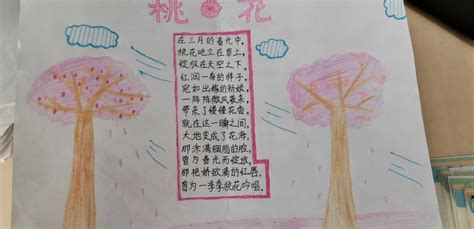 桃花
在三月的春光中，
桃花屹立在草上，
绽放在天空之下。
红润一身的样子，
宛如出嫁的新娘，
一阵阵微风袭来，
带来了缕缕花香。
就在这一瞬之间，
大地变成了花海，
那涂满胭脂的脸，
曾为春光而绽放，
那艳娇欲滴的红唇，
曾为一季季桃花吟唱。